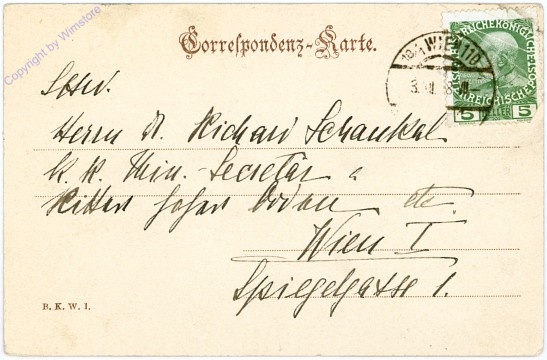 Copyright by Wimstore
Correspondenz-Karte.
18/1 WIEN 110
3. VI
REICHE KÖNIGLICHE
5 HELLER 5
Herrn Dr. Richard Schaukal
k. k. Min.-Secretär
Ritter hoher Orden etc.
Wien I
Spiegelgasse 1.
B. K. W. I.